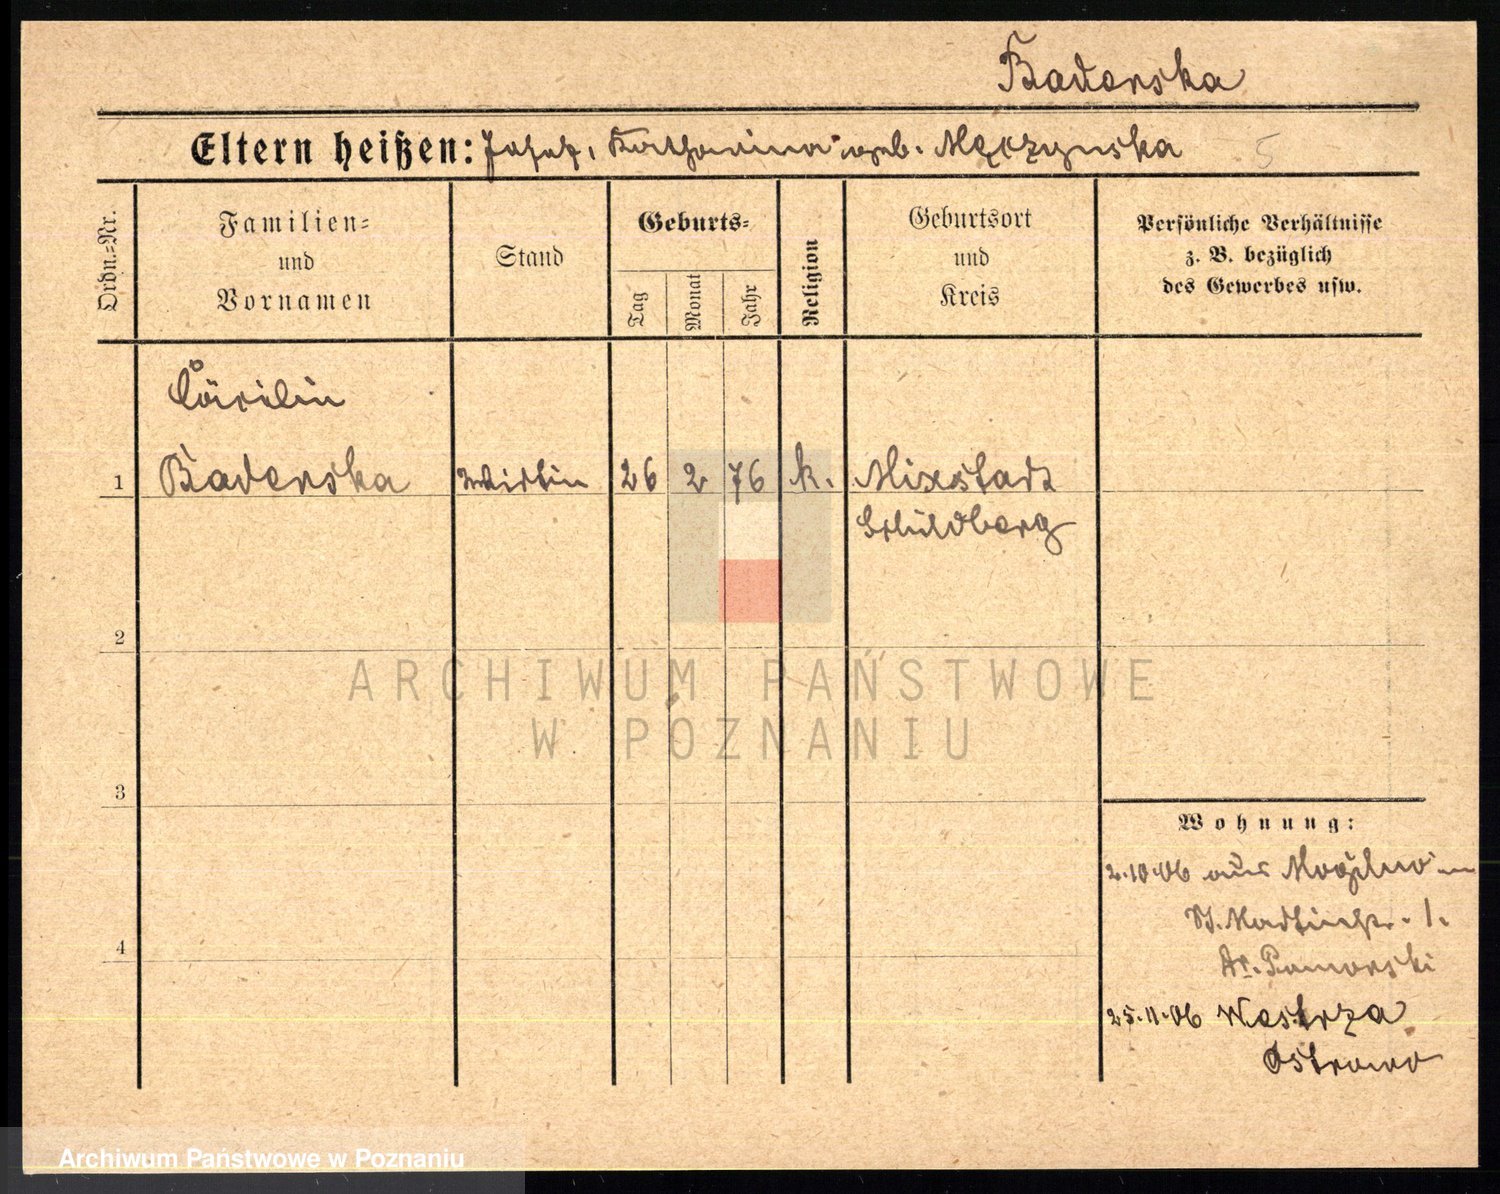 Baderska
Eltern heißen: Josef, Katharina geb. Męczynska 5
Ordn.=Nr.
Familien=
und
Vornamen
Stand
Geburts=
Tag
Monat
Jahr
Religion
Geburtsort
und
Kreis
Persönliche Verhältnisse
z. B. bezüglich
des Gewerbes usw.
Cäcilie
1 Baderska Wirtin 26 2 76 k. Mixstadt
Schildberg
2
3
4
Wohnung:
2.10.06 aus
St. Martinstr. 1.
Dr. Pomorski
25.11.06 Westrza
Ostrowo
ARCHIWUM PAŃSTWOWE
W POZNANIU
Archiwum Państwowe w Poznaniu